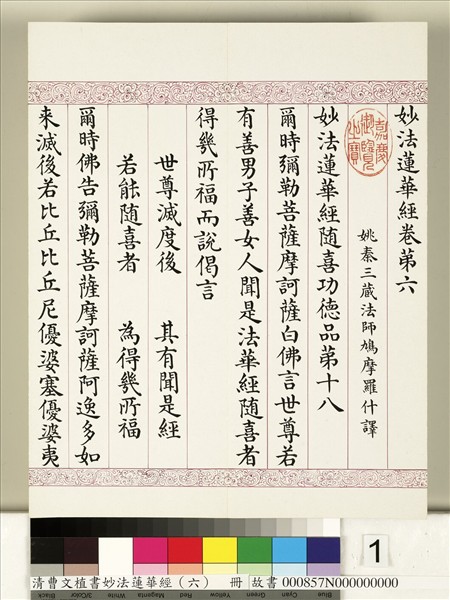 妙法蓮華經卷第六
嘉慶御覽之寶
姚秦三藏法師鳩摩羅什譯
妙法蓮華經随喜功德品苐十八
爾時彌勒菩薩摩訶薩白佛言世尊若
有善男子善女人聞是法華經随喜者
得幾所福而說偈言
世尊滅度後 其有聞是經
若能随喜者 為得幾所福
爾時佛告彌勒菩薩摩訶薩阿逸多如
来滅後若比丘比丘尼優婆塞優婆夷
1
Blue Cyan Green Yellow Red Magenta White 3/Color Black
清曹文植書妙法蓮華經（六） 冊 故書 000857N000000000